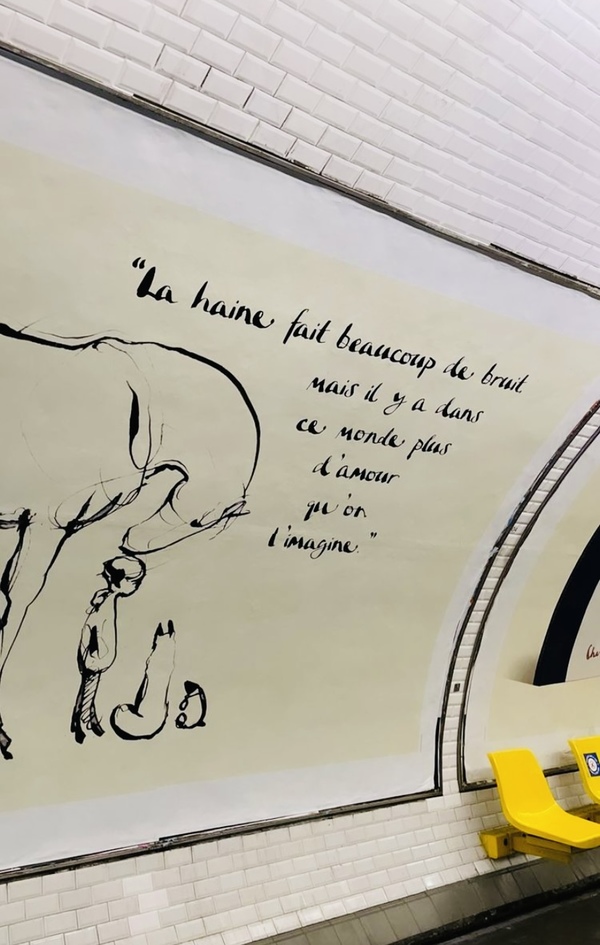 "La haine fait beaucoup de bruit
mais il y a dans
ce monde plus
d'amour
qu'on
l'imagine."